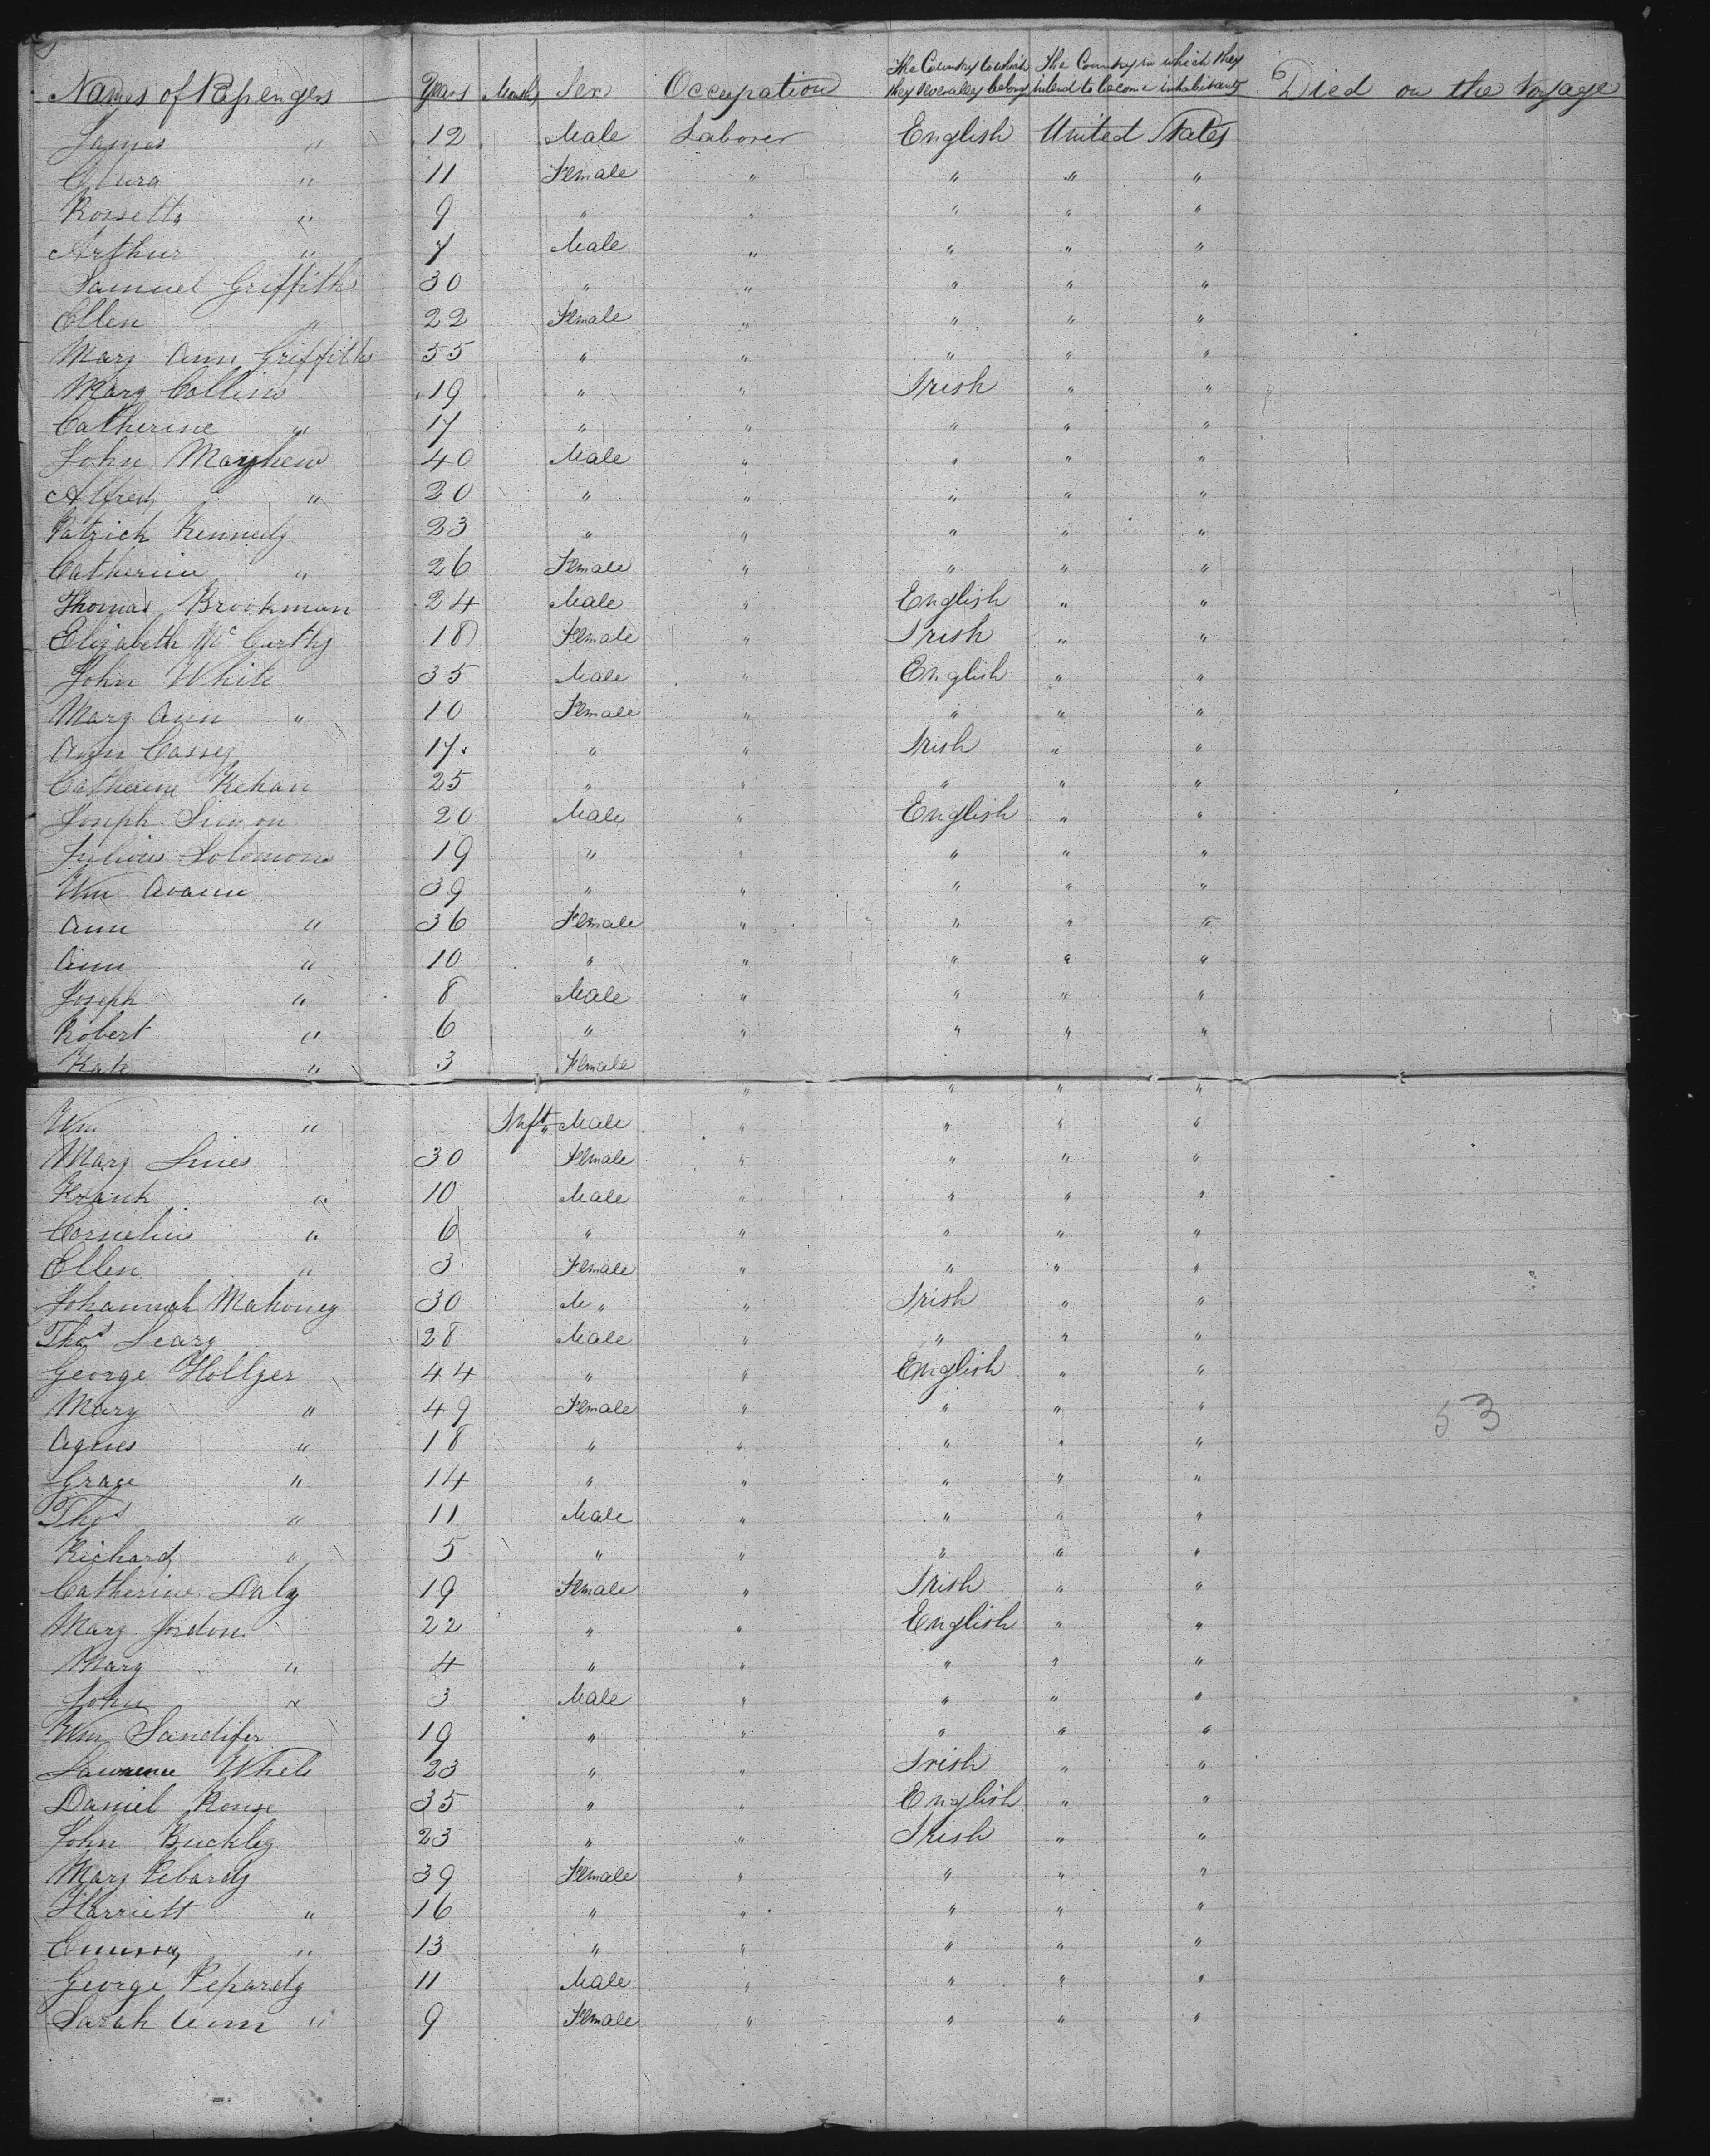 Names of Passengers Years Months Sex Occupation The Country to which they severally belong The Country in which they intend to become inhabitants Died on the Voyage
James " 12 Male Laborer English United States
" 11 Female " " " "
Rossetta " 9 " " " " "
Arthur " 7 Male " " " "
Samuel Griffiths 30 " " " " "
Ellen " 22 Female " " " "
Mary Ann Griffiths 55 " " " " "
Mary Collins 19 " " Irish " "
Catherine " 17 " " " " "
John Mayhew 40 Male " " " "
Alfred " 20 " " " " "
Patrick Kennedy 23 " " " " "
Catherine " 26 Female " " " "
Thomas Brookman 24 Male " English " "
Elizabeth McCarthy 18 Female " Irish " "
John White 35 Male " English " "
Mary Ann " 10 Female " " " "
Ann Casey 17 " " Irish " "
Catherine Kehan 25 " " " " "
Joseph Simon 20 Male " English " "
Julius Solomons 19 " " " " "
Wm 39 " " " " "
Ann " 36 Female " " " "
Ann " 10 " " " " "
Joseph " 8 Male " " " "
Robert " 6 " " " " "
Kate " 3 Female " " " "
Wm " Inft Male " " " "
Mary Lines 30 Female " " " "
Frank " 10 Male " " " "
Cornelius " 6 " " " " "
Ellen " 3 Female " " " "
Johannah Mahoney 30 M " " Irish " "
Thos Leary 28 Male " " " "
George Hollyer 44 " " English " "
Mary " 49 Female " " " "
Agnes " 18 " " " " "
Grace " 14 " " " " "
Thos " 11 Male " " " "
Richard " 5 " " " " "
Catherine Daly 19 Female " Irish " "
Mary Jordon 22 " " English " "
Mary " 4 " " " " "
John " 3 Male " " " "
Wm Sandifer 19 " " " " "
Lawrence White 23 " " Irish " "
Daniel Rouse 35 " " English " "
John Buckley 23 " " Irish " "
Mary 39 Female " " " "
Harriett " 16 " " " " "
Emma " 13 " " " " "
George Pepardy 11 Male " " " "
Sarah Ann " 9 Female " " " "
53